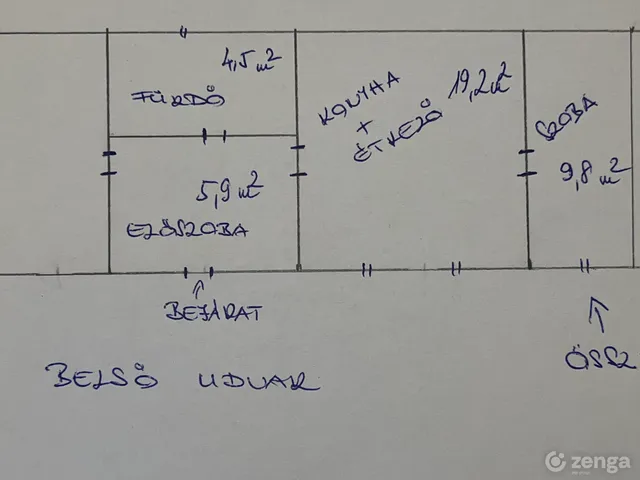 4,5 m²
FÜRDŐ
KONYHA
+
ÉTKEZŐ
19,2 m²
SZOBA
9,8 m²
5,9 m²
ELŐSZOBA
BEJÁRAT
BELSŐ UDVAR
ÖSSZ
zenga